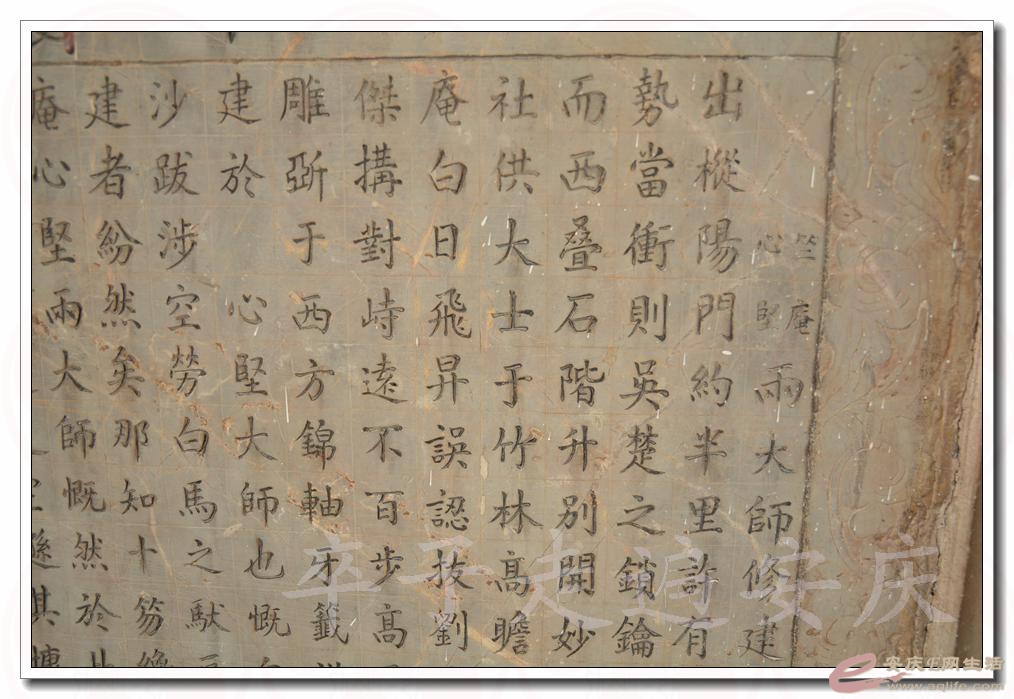 竺庵
心堅
兩大師修建
出樅陽門約半里許有
勢當衝則吳楚之鎖鑰
而西叠石階升別開妙
社供大士于竹林高瞻
庵白日飛昇誤認技劉
傑搆對峙遠不百步高
雕斲于西方錦軸牙籤
建於 心堅大師也慨
沙跋涉空勞白馬之馱
建者紛然矣那知十笏
庵心堅兩大師慨然於
其
卒子走遍安庆
安庆E网生活
www.aqlife.com